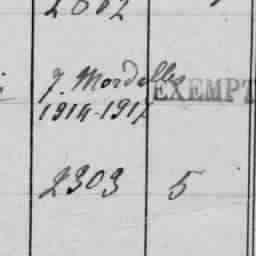 2882
J. Mordelles EXEMPT
1914-1917
2303 5